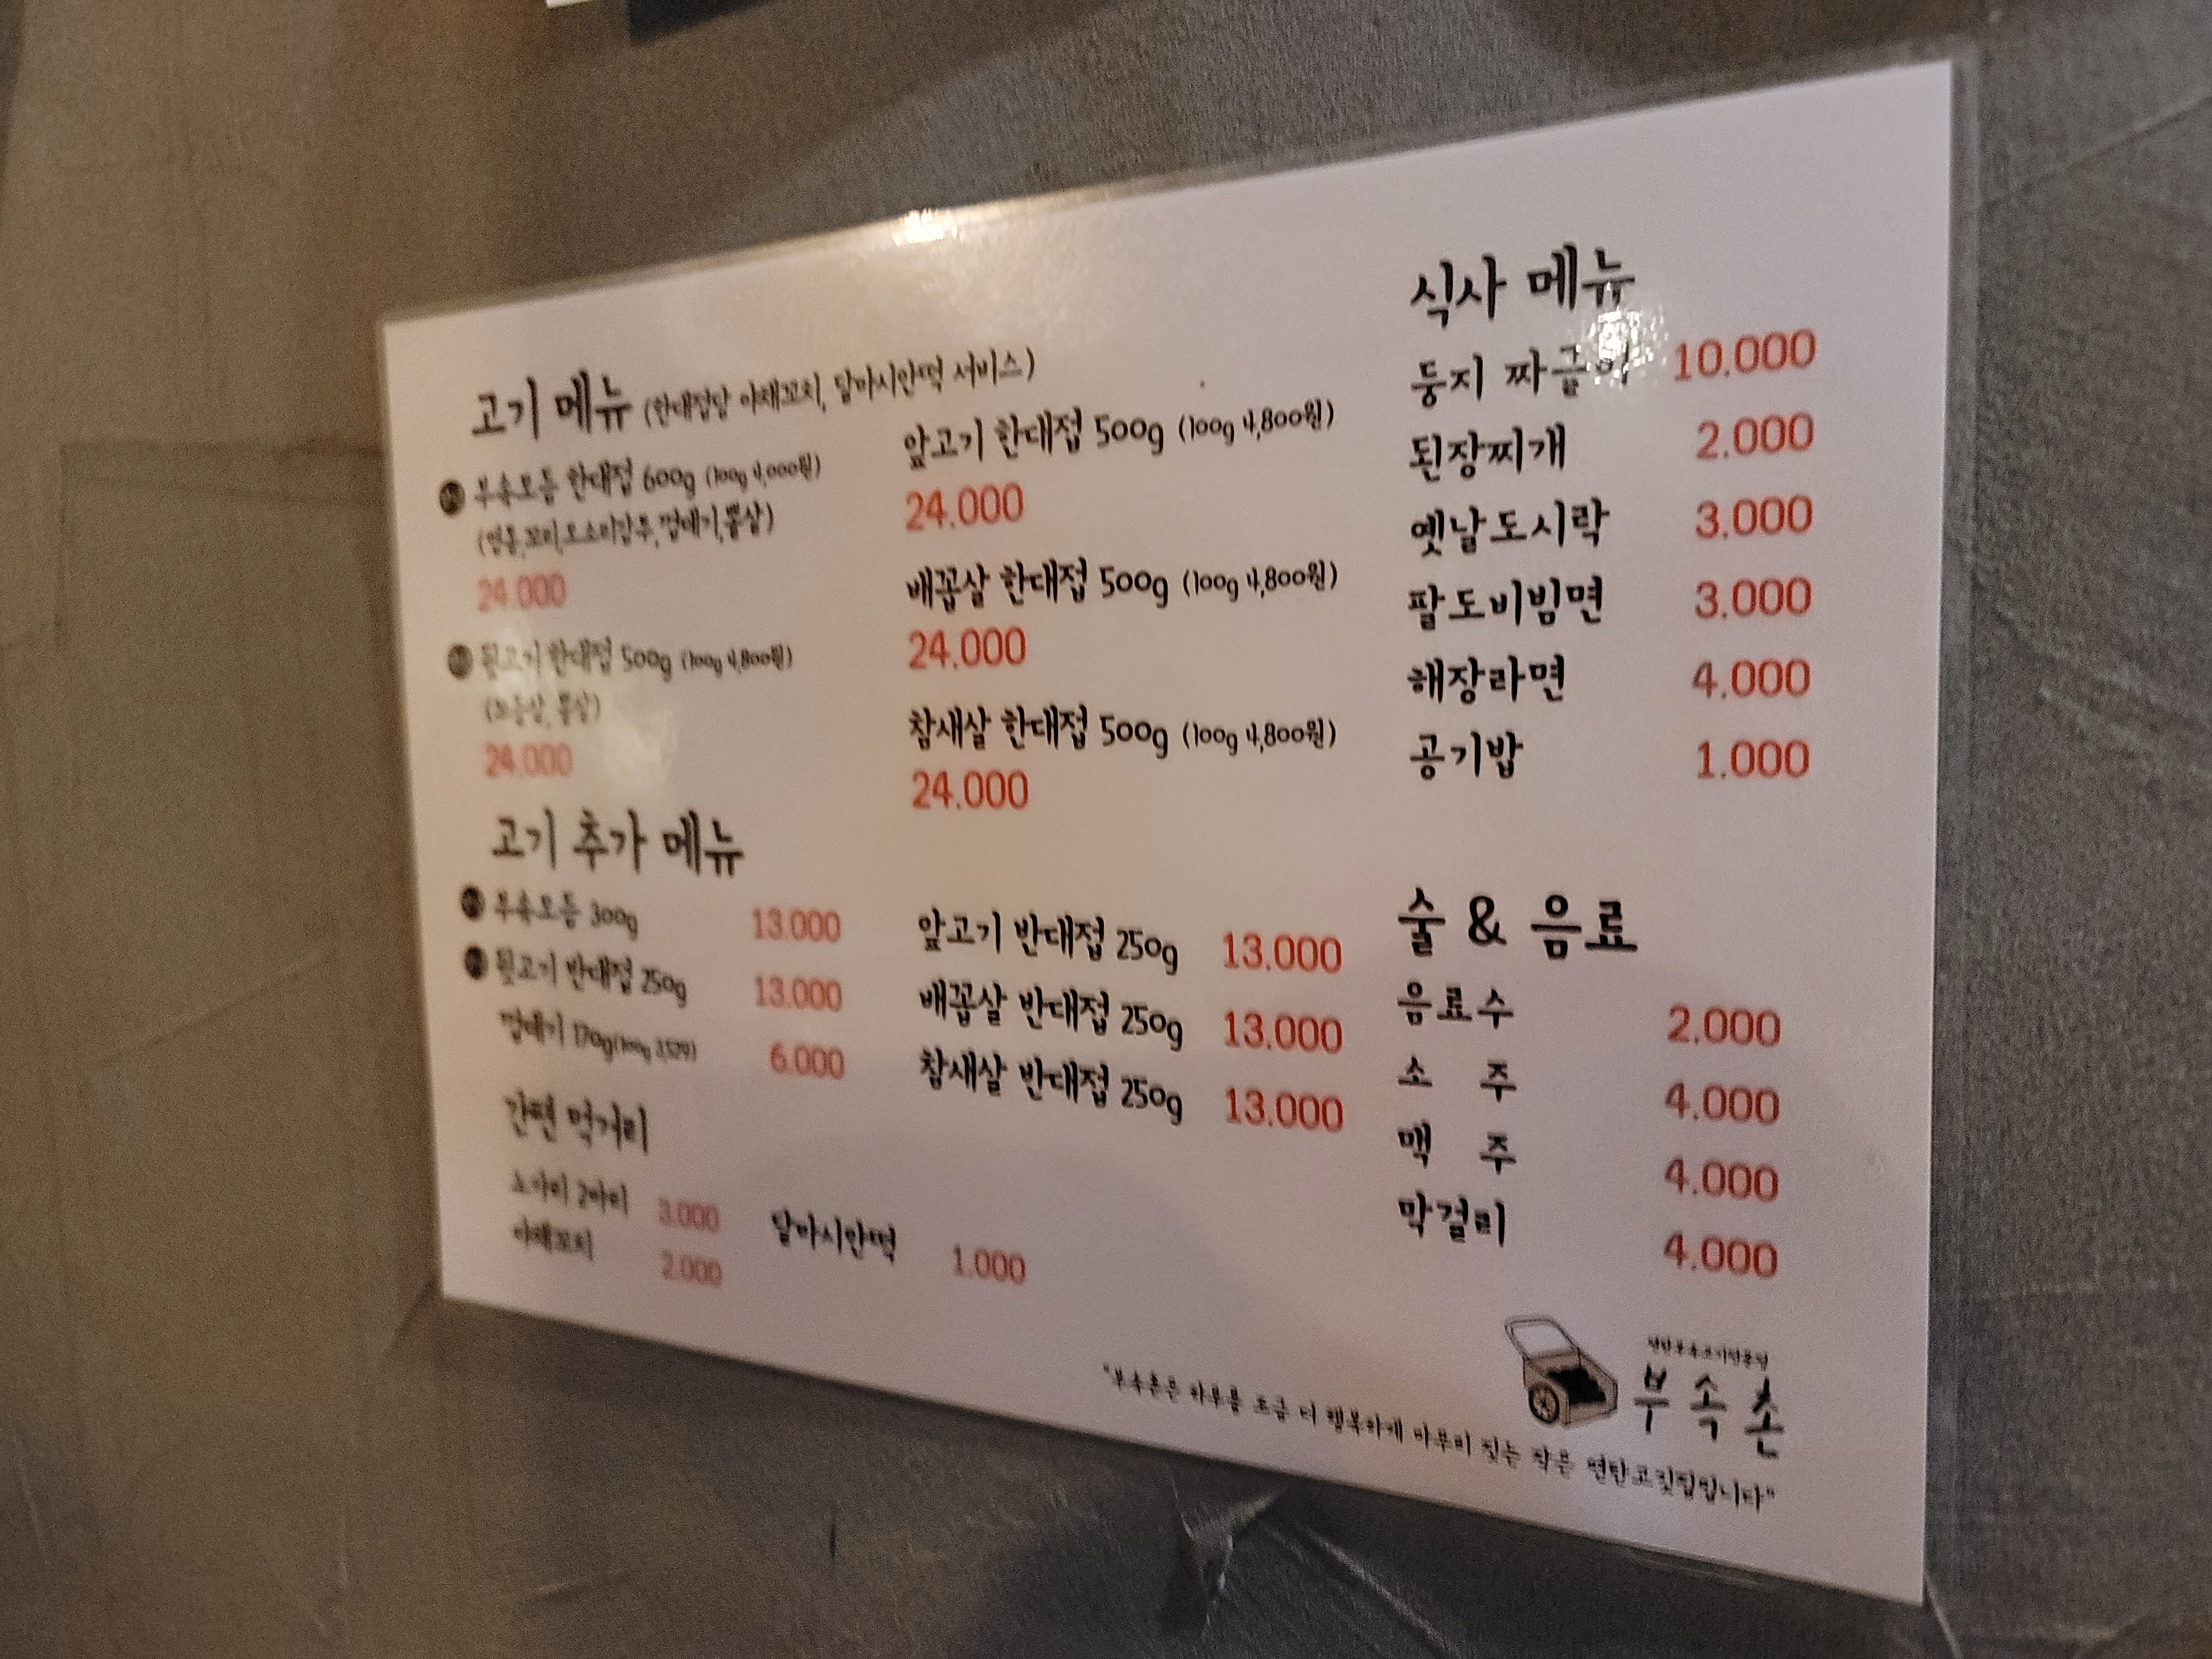 고기 메뉴 (한대접당 야채꼬치, 달마시안떡 서비스)
부속모듬 한대접 600g (100g 4,000원)
(염통,꼬리,오소리감투,껍데기,뽈살)
24.000
뒷고기 한대접 500g (100g 4,800원)
24.000
앞고기 한대접 500g (100g 4,800원)
24.000
배꼽살 한대접 500g (100g 4,800원)
24.000
참새살 한대접 500g (100g 4,800원)
24.000
고기 추가 메뉴
부속모듬 300g 13.000
뒷고기 반대접 250g 13.000
껍데기 170g(100g 3,529) 6.000
앞고기 반대접 250g 13.000
배꼽살 반대접 250g 13.000
참새살 반대접 250g 13.000
간편 먹거리
노가리 2마리 3.000
야채꼬치 2.000
달마시안떡 1.000
식사 메뉴
둥지 짜글이 10.000
된장찌개 2.000
옛날도시락 3.000
팔도비빔면 3.000
해장라면 4.000
공기밥 1.000
술 & 음료
음료수 2.000
소 주 4.000
맥 주 4.000
막걸리 4.000
부속촌
"부속촌은 하루를 조금 더 행복하게 마무리 짓는 작은 연탄고깃집입니다"